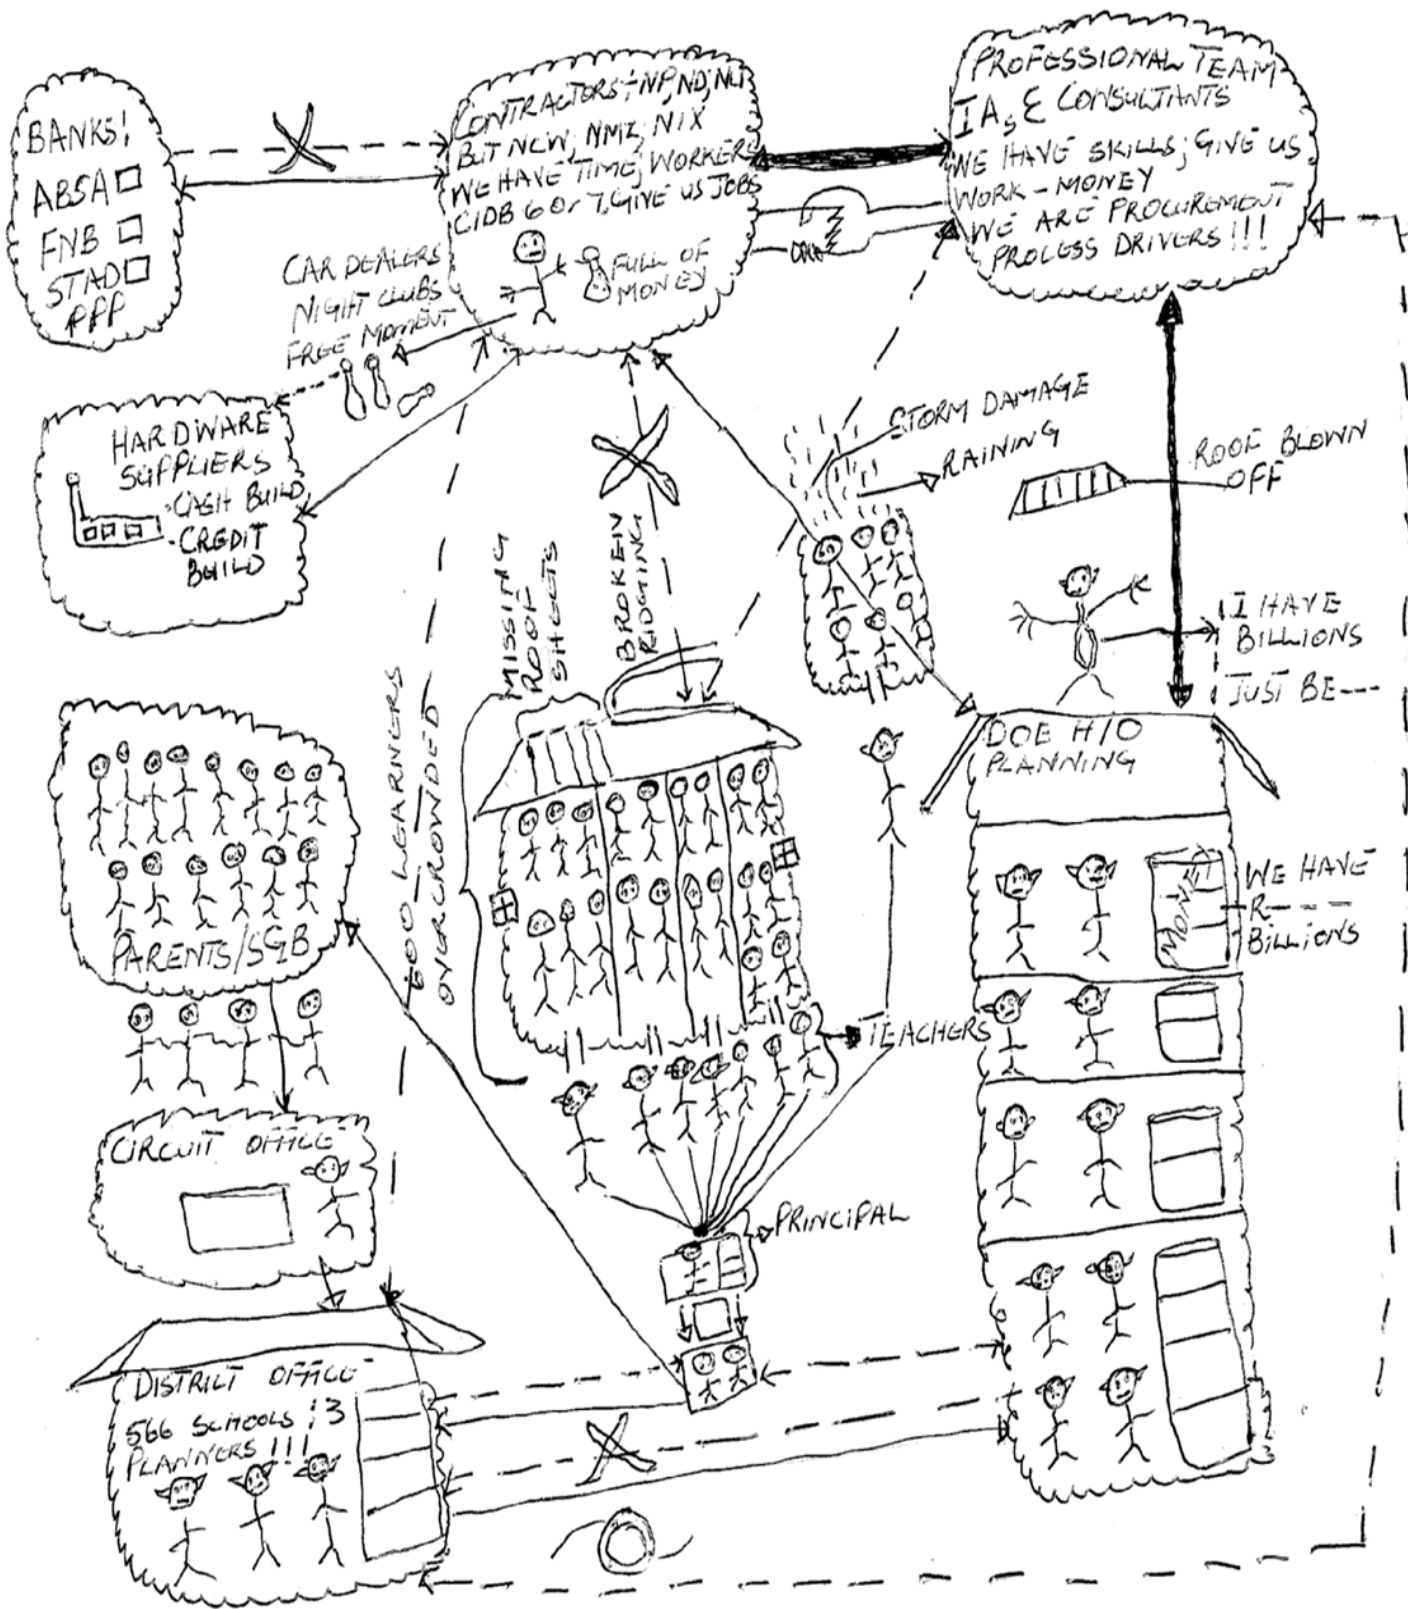 BANKS!
ABSA
FNB
STAD
CONTRACTORS:- NP, ND, NLI
BUT NCW, NMZ, NIX
WE HAVE TIME; WORKERS
CIDB 6 or 7, GIVE US JOBS
FULL OF
MONEY
PROFESSIONAL TEAM-
IAs & CONSULTANTS
WE HAVE SKILLS; GIVE US
WORK - MONEY
WE ARE PROCUREMENT
PROCESS DRIVERS !!!
CAR DEALERS
NIGHT CLUBS
FREE MOMENT
HARDWARE
SUPPLIERS
- CASH BUILD
- CREDIT
BUILD
STORM DAMAGE
RAINING
ROOF BLOWN
OFF
MISSING
ROOF
SHEETS
BROKEN
RIDGING
I HAVE
BILLIONS
JUST BE---
600 LEARNERS
OVERCROWDED
DOE H/O
PLANNING
MONEY
WE HAVE
R----
BILLIONS
PARENTS/SGB
TEACHERS
CIRCUIT OFFICE
PRINCIPAL
DISTRICT OFFICE
566 SCHOOLS ; 3
PLANNERS !!!